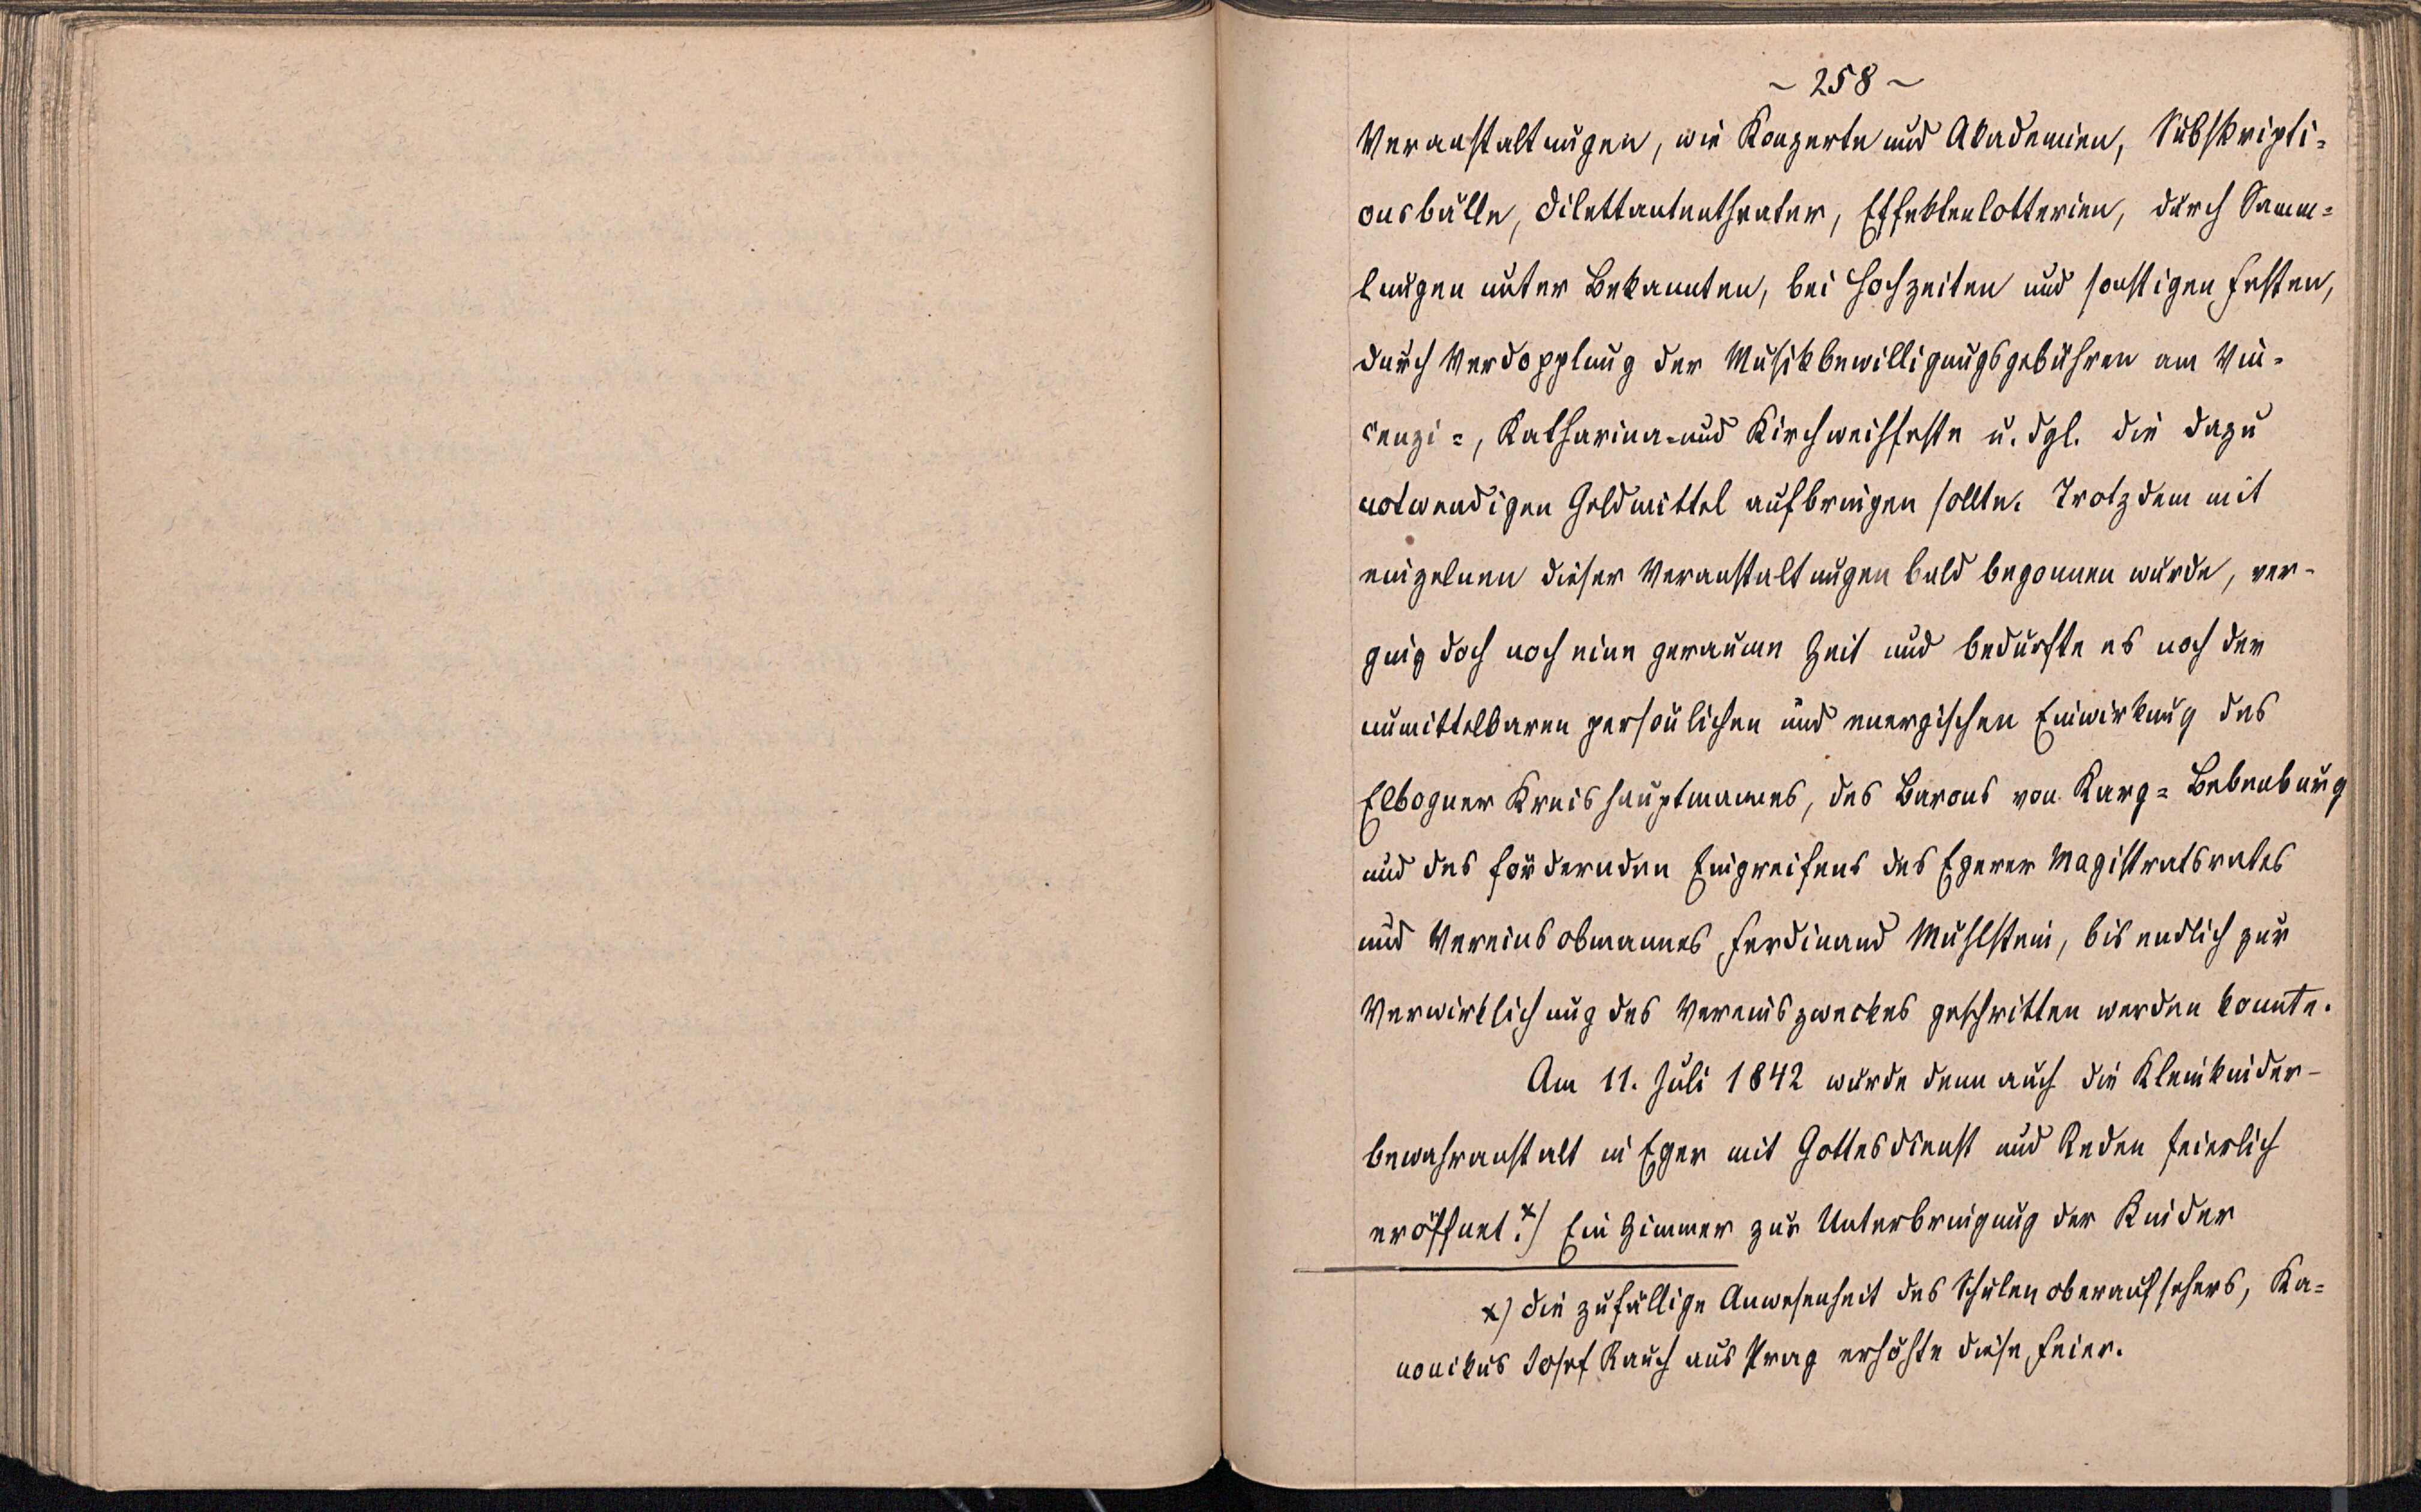 ~ 258 ~
Veranstaltungen, wie Konzerte und Akademien, Subskripti=
onsbälle, Dilettantentheater, Effektenlotterien, durch Samm=
lungen unter Bekannten, bei Hochzeiten und sonstigen Festen,
durch Verdopplung der Musikbewilligungsgebühren am Vin=
cenzi=, Katharina- und Kirchweihfeste u. dgl. die dazu
notwendigen Geldmittel aufbringen sollte. Trotzdem mit
einzelnen dieser Veranstaltungen bald begonnen wurde, ver-
ging doch noch eine geraume Zeit und bedurfte es noch der
unmittelbaren persönlichen und energischen Einwirkung des
Elbogner Kreishauptmannes, des Barons von Karg=Bebenburg
und des fördernden Eingreifens des Egerer Magistratsrates
und Vereinsobmannes Ferdinand Muhlstein, bis endlich zur
Verwirklichung des Vereinszweckes geschritten werden konnte.
Am 11. Juli 1842 wurde denn auch die Kleinkinder-
bewahranstalt in Eger mit Gottesdienst und Reden feierlich
eröffnet. x) Ein Zimmer zur Unterbringung der Kinder
x) Die zufällige Anwesenheit des Schulenoberaufsehers, Ka=
nonikus Josef Rauch aus Prag erhöhte diese Feier.